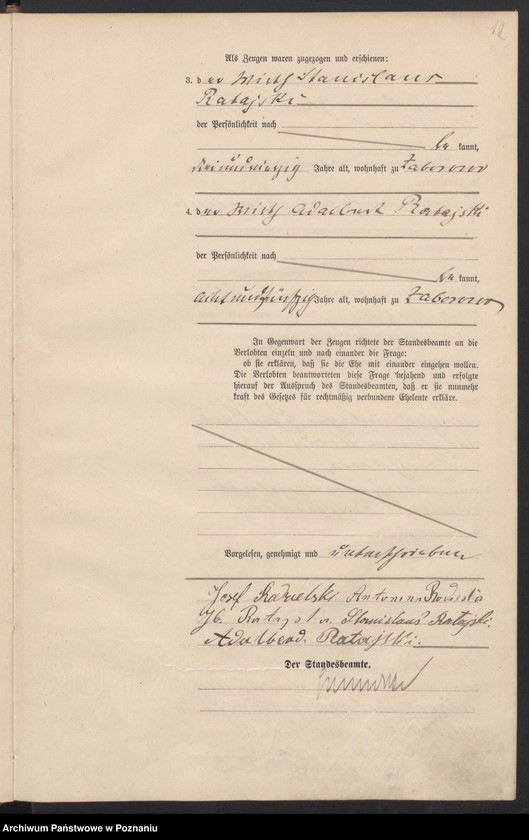 12
Als Zeugen waren zugezogen und erschienen:
3. der Wirth Stanislaus
Ratajski
der Persönlichkeit nach
be kannt,
dreiundvierzig Jahre alt, wohnhaft zu Zaborowo
4. der Wirth Adalbert Ratajski
der Persönlichkeit nach
be kannt,
achtundfünfzig Jahre alt, wohnhaft zu Zaborowo
In Gegenwart der Zeugen richtete der Standesbeamte an die
Verlobten einzeln und nach einander die Frage:
ob sie erklären, daß sie die Ehe mit einander eingehen wollen.
Die Verlobten beantworteten diese Frage bejahend und erfolgte
hierauf der Ausspruch des Standesbeamten, daß er sie nunmehr
kraft des Gesetzes für rechtmäßig verbundene Eheleute erkläre.
Vorgelesen, genehmigt und unterschrieben
Józef Antonina
Stanislaus Ratajski.
Ratajski.
Der Standesbeamte.
Archiwum Państwowe w Poznaniu